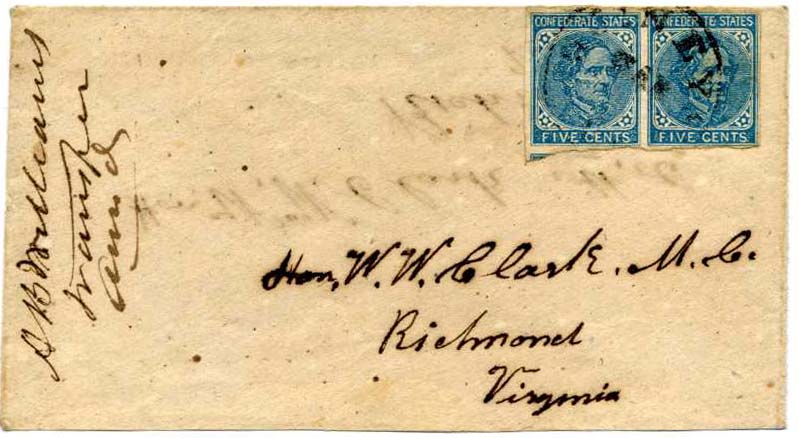 CONFEDERATE STATES
FIVE CENTS
CONFEDERATE STATES
FIVE CENTS
Hon, W. W. Clark. M. C.
Richmond
Virginia
A B Williams
transfer